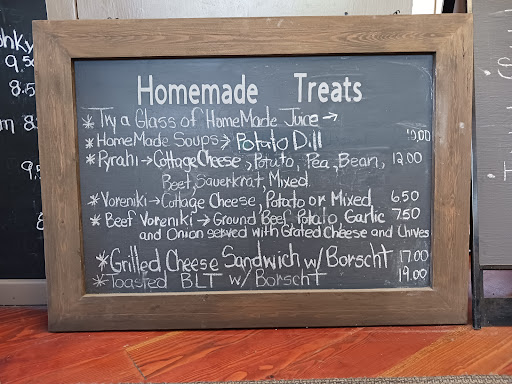 Homemade Treats
* Try a Glass of HomeMade Juice →
* HomeMade Soups → Potato Dill 10.00
* Pyrahi → Cottage Cheese, Potuto, Pea, Bean, 12.00
Beet, Sauerkrat, Mixed
* Voreniki → Cottage Cheese, Potato or Mixed 6.50
* Beef Voreniki → Ground Beef, Potato, Garlic 7.50
and Onion served with Grated Cheese and Chives
* Grilled Cheese Sandwich w/ Borscht 17.00
* Toasted BLT w/ Borscht 19.00